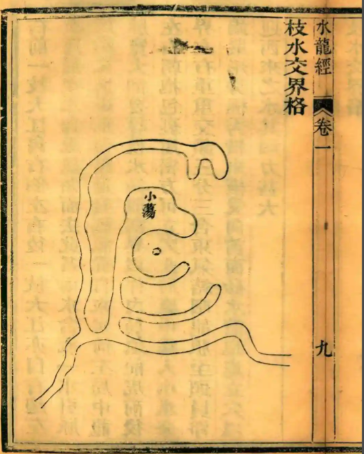 水龍經
卷一
九
枝水交界格
小蕩